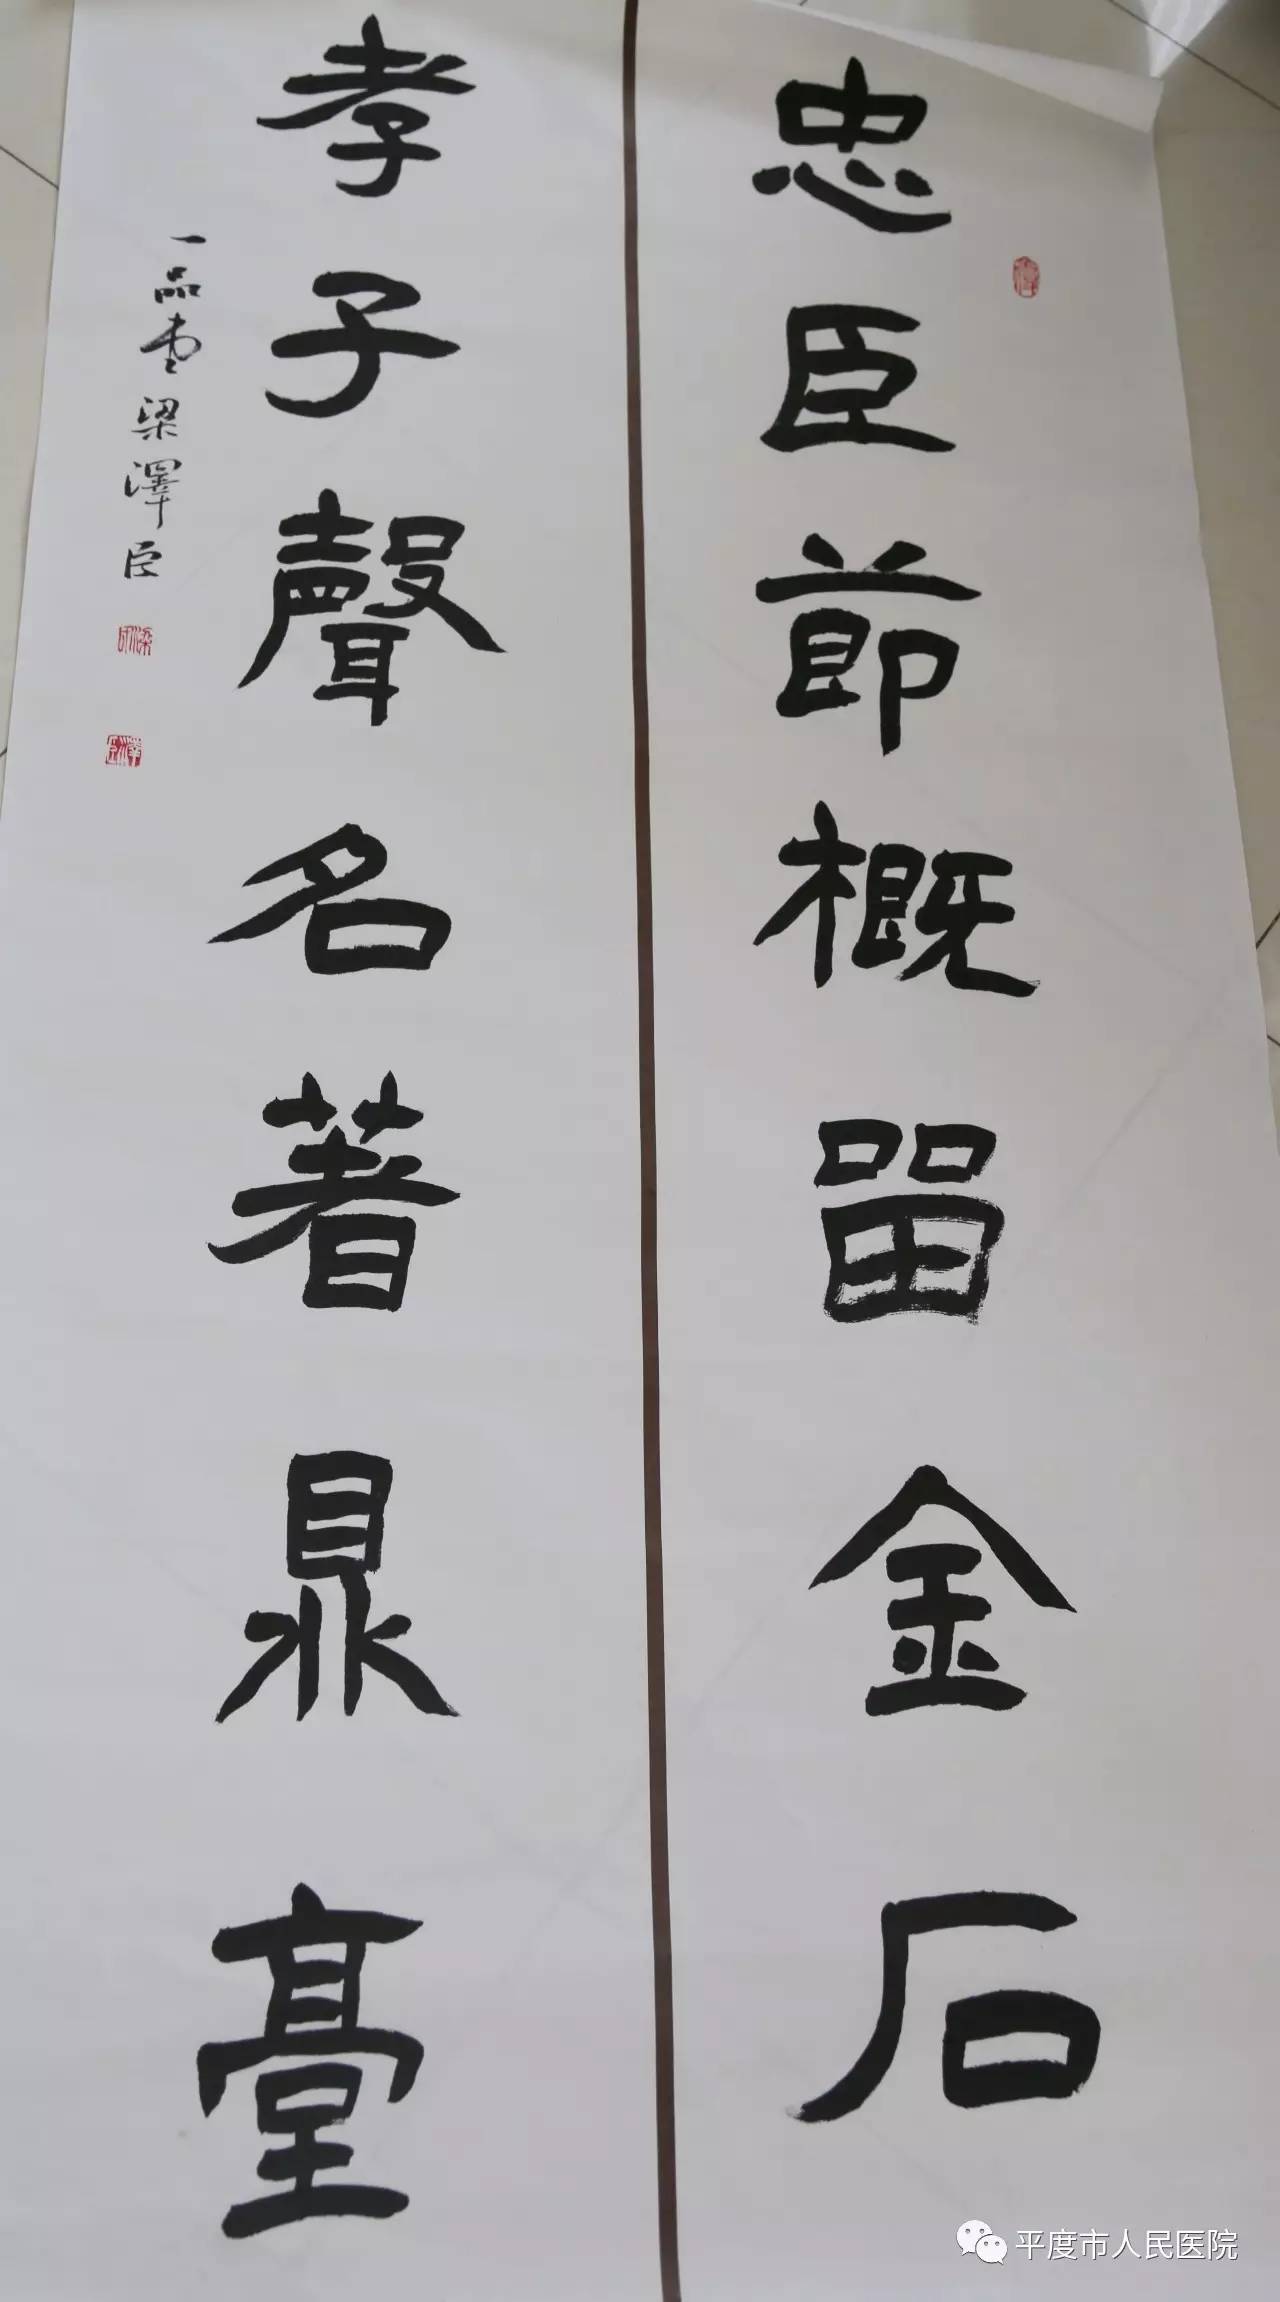 忠臣節概留金石
孝子聲名著鼎臺
一品堂梁澤臣
平度市人民医院